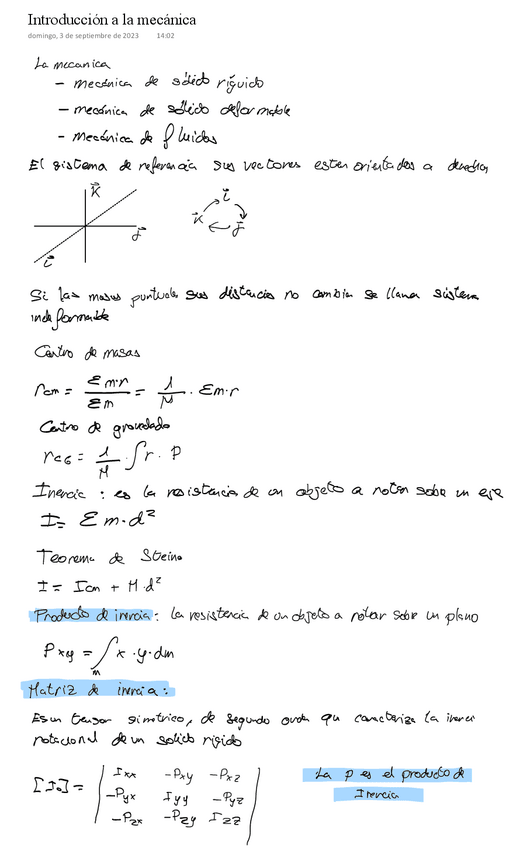 Introducción a la mecánica
domingo, 3 de septiembre de 2023 14:02
La mecanica
- mecánica de sólido ríguido
- mecánica de sólido deformable
- mecánica de fluidos
El sistema de referencia sus vectores esten orientados a derechas
K
J
i
i
K J
Si las masas puntuales sus distancias no cambia se llama sistema
indeformable
Centro de masas
rcm = Σm·r / Σm = 1/M · Σm·r
Centro de gravedado
rCG = 1/M ∫r · P
Inercia : es la resistencia de un objeto a rotar sobre un eje
I= Σm·d²
Teorema de Steine
I = Icm + M·d²
Producto de inercia: la resistencia de un objeto a rotar sobre un plano
Pxy = ∫m x·y·dm
Matriz de inercia:
Es un tensor simetrico, de segundo orden que caracteriza la inercia
rotacional de un solido rigido
[Io] = | Ixx -Pxy -Pxz
-Pyx Iyy -Pyz
-Pzx -Pzy Izz |
La P es el producto de
Inercia